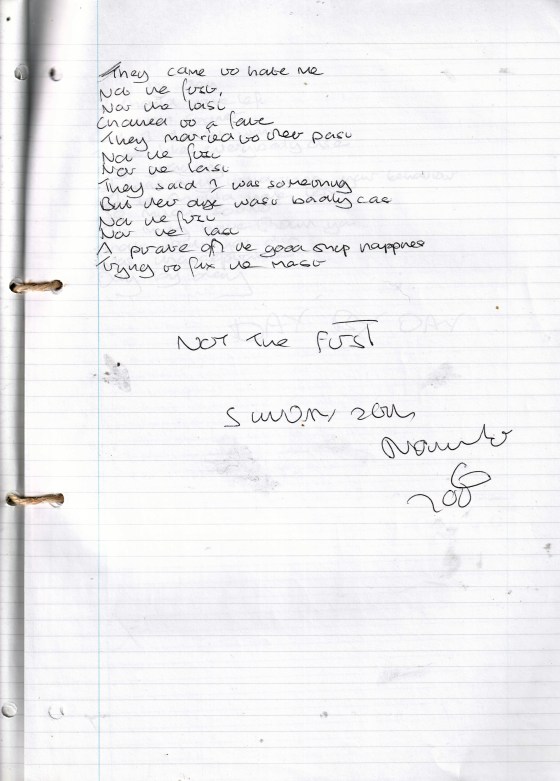 They came to hate me
Not the first,
Nor the last
Chained to a fate
They married to their past
Not the first
Nor the last
They said I was something
But their dye wast badly cast
Not the first
Nor the last
A pirate of the good ship happiness
Trying to fix the mast
NOT THE FIRST
200